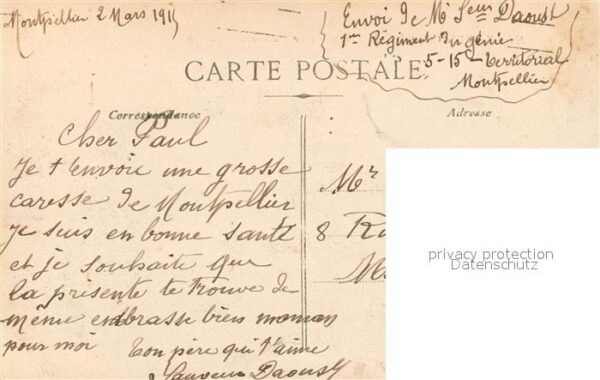 Montpellier 2 Mars 1915
Envoi de Mr Daoust
1er Régiment du génie
5-15-Territorial
Montpellier
CARTE POSTALE
Correspondance
Adresse
Cher Paul
Je t'envoie une grosse
caresse de Montpellier
Je suis en bonne santé
et je souhaite que
la présente te trouve de
même embrasse bien maman
pour moi
Ton père qui t'aime
Daoust
Mr
8
privacy protection
Datenschutz